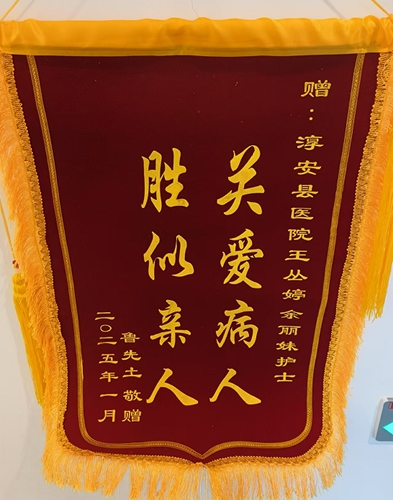 赠：淳安县医院王丛婷余丽妹护士
关爱病人
胜似亲人
鲁先土 敬赠
二〇二五年一月